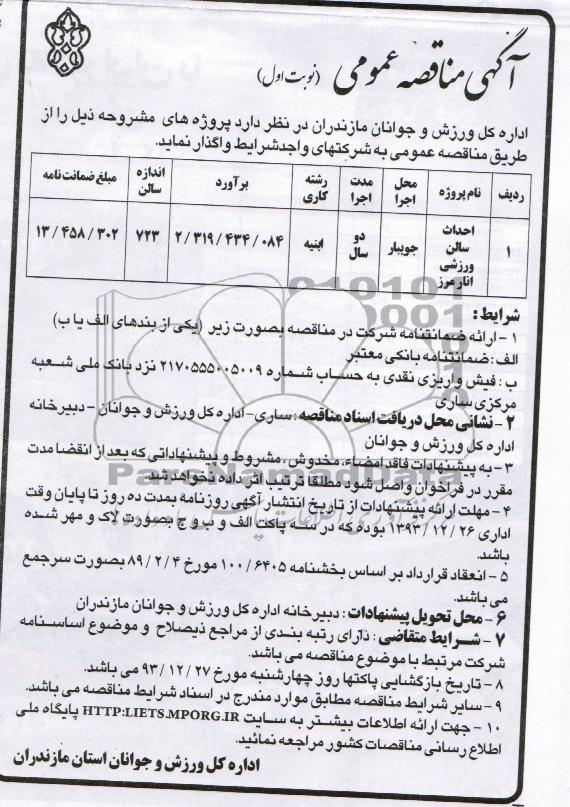 آگهی مناقصه عمومی (نوبت اول)
اداره کل ورزش و جوانان مازندران در نظر دارد پروژه های مشروحه ذیل را از
طریق مناقصه عمومی به شرکتهای واجدشرایط واگذار نماید.
ردیف نام پروژه محل اجرا مدت اجرا رشته کاری برآورد اندازه سالن مبلغ ضمانت نامه
۱ احداث سالن ورزشی انارمرز جویبار دو سال ابنیه ۲/۳۱۹/۴۳۴/۰۸۴ ۷۲۳ ۱۳/۴۵۸/۳۰۲
شرایط:
۱- ارائه ضمانتنامه شرکت در مناقصه بصورت زیر (یکی از بندهای الف یا ب)
الف: ضمانتنامه بانکی معتبر
ب: فیش واریزی نقدی به حساب شماره ۲۱۷۰۵۵۵۰۰۵۰۰۹ نزد بانک ملی شعبه
مرکزی ساری
۲- نشانی محل دریافت اسناد مناقصه: ساری- اداره کل ورزش و جوانان - دبیرخانه
اداره کل ورزش و جوانان
۳- به پیشنهادات فاقد امضاء، مخدوش، مشروط و پیشنهاداتی که بعد از انقضا مدت
مقرر در فراخوان واصل شود مطلقا ترتیب اثر داده نخواهد شد.
۴- مهلت ارائه پیشنهادات از تاریخ انتشار آگهی روزنامه بمدت ده روز تا پایان وقت
اداری ۱۳۹۳/۱۲/۲۶ بوده که در سه پاکت الف و ب و ج بصورت لاک و مهر شده
باشد.
۵- انعقاد قرارداد بر اساس بخشنامه ۱۰۰/۶۴۰۵ مورخ ۸۹/۲/۴ بصورت سرجمع
می باشد.
۶- محل تحویل پیشنهادات: دبیرخانه اداره کل ورزش و جوانان مازندران
۷- شرایط متقاضی: دارای رتبه بندی از مراجع ذیصلاح و موضوع اساسنامه
شرکت مرتبط با موضوع مناقصه می باشد.
۸- تاریخ بازگشایی پاکتها روز چهارشنبه مورخ ۹۳/۱۲/۲۷ می باشد.
۹- سایر شرایط مناقصه مطابق موارد مندرج در اسناد شرایط مناقصه می باشد.
۱۰- جهت ارائه اطلاعات بیشتر به سایت HTTP:LIETS.MPORG.IR پایگاه ملی
اطلاع رسانی مناقصات کشور مراجعه نمائید.
اداره کل ورزش و جوانان استان مازندران
ParsNamadData